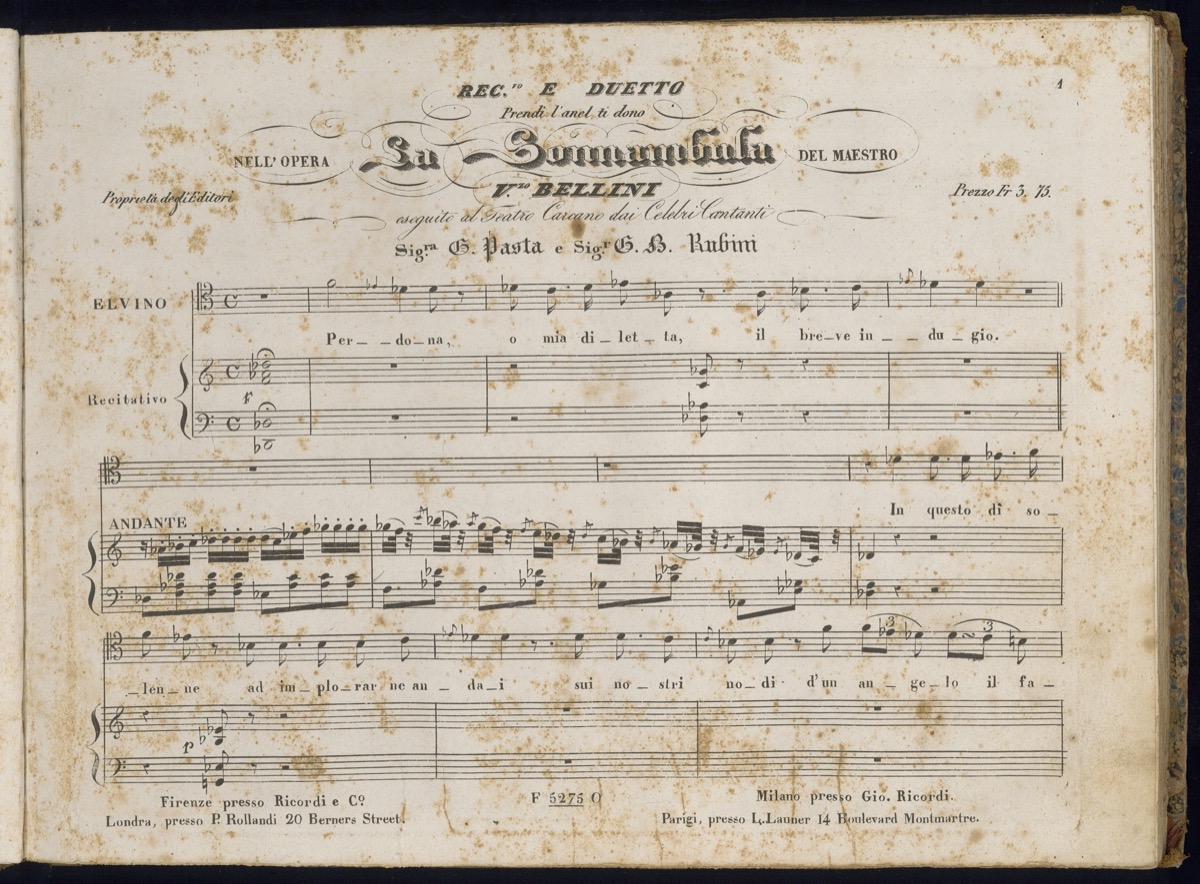 1
REC.ro E DUETTO
Prendi l'anel ti dono
NELL'OPERA La Sonnambula DEL MAESTRO
V.zo BELLINI
Proprietà degli Editori
Prezzo Fr 3. 75.
eseguito al Teatro Carcano dai Celebri Cantanti
Sig.ra G. Pasta e Sig.r G. B. Rubini
ELVINO
Per_ _do_na, o mia di_let_ta, il bre_ve in_ _du_gio.
Recitativo
In questo dì so_
ANDANTE
3 3
_len_ne ad im_plo_rar ne an_da_i sui no_stri no_di d'un an_ge_lo il fa_
P
Firenze presso Ricordi e Co.
F 5275 O
Milano presso Gio. Ricordi.
Londra, presso P. Rollandi 20 Berners Street.
Parigi, presso L. Launer 14 Boulevard Montmartre.